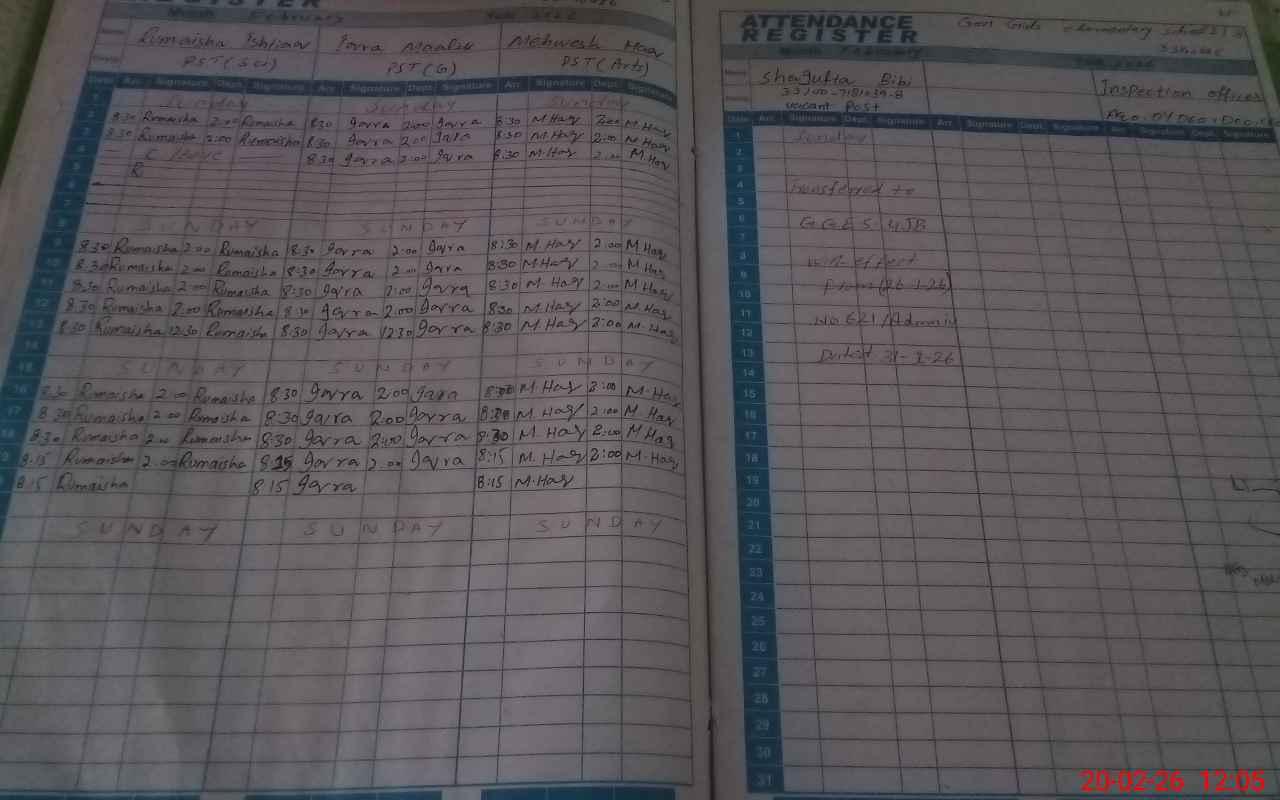 REGISTER
Month February
Rumaisha Ishtiaq
PST(Sci)
Iqra Maalik
PST(G)
Mehwesh Haq
PST(Arts)
Date Arr. Signature Dept. Signature Arr. Signature Dept. Signature Arr. Signature Dept. Signature
1 Sunday Sunday Sunday
2 8:30 Rumaisha 2:00 Rumaisha 8:30 Iqra 2:00 Iqra 8:30 M.Haq 2:00 M.Haq
3 8:30 Rumaisha 2:00 Rumaisha 8:30 Iqra 2:00 Iqra 8:30 M.Haq 2:00 M.Haq
4 8:30 Iqra 2:00 Iqra 8:30 M.Haq 2:00 M.Haq
5
6
7
8 SUNDAY SUNDAY SUNDAY
9 8:30 Rumaisha 2:00 Rumaisha 8:30 Iqra 2:00 Iqra 8:30 M.Haq 2:00 M.Haq
10 8:30 Rumaisha 2:00 Rumaisha 8:30 Iqra 2:00 Iqra 8:30 M.Haq 2:00 M.Haq
11 8:30 Rumaisha 2:00 Rumaisha 8:30 Iqra 2:00 Iqra 8:30 M.Haq 2:00 M.Haq
12 8:30 Rumaisha 2:00 Rumaisha 8:30 Iqra 2:00 Iqra 8:30 M.Haq 2:00 M.Haq
13 8:30 Rumaisha 12:30 Rumaisha 8:30 Iqra 12:30 Iqra 8:30 M.Haq M.Haq
14
15 SUNDAY SUNDAY SUNDAY
16 8:30 Rumaisha 2:00 Rumaisha 8:30 Iqra 2:00 Iqra 8:30 M.Haq 2:00 M.Haq
17 8:30 Rumaisha 2:00 Rumaisha 8:30 Iqra 2:00 Iqra 8:30 M.Haq 2:00 M.Haq
8:30 Rumaisha 2:00 Rumaisha 8:30 Iqra 2:00 Iqra 8:30 M.Haq 2:00 M.Haq
8:15 Rumaisha 2:00 Rumaisha 8:15 Iqra 2:00 Iqra 8:15 M.Haq 2:00 M.Haq
8:15 Rumaisha 8:15 Iqra 8:15 M.Haq
SUNDAY SUNDAY SUNDAY
ATTENDANCE
REGISTER
Govt Girls elementary school
Month February
Shagufta Bibi
vacant Post
Inspection officer
Date Arr. Signature Dept. Signature Arr. Signature Dept. Signature Arr. Signature Dept. Signature
1 Sunday
2
3
4 Transferred to
5
6 GGES 4JB
7
8 with effect
9 from (26-1-26)
10
11 No 621/Admin
12
13 Dated 31-1-26
14
15
16
17
18
19
20
21
22
23
24
25
26
27
28
29
30
31
20-02-26 12:05